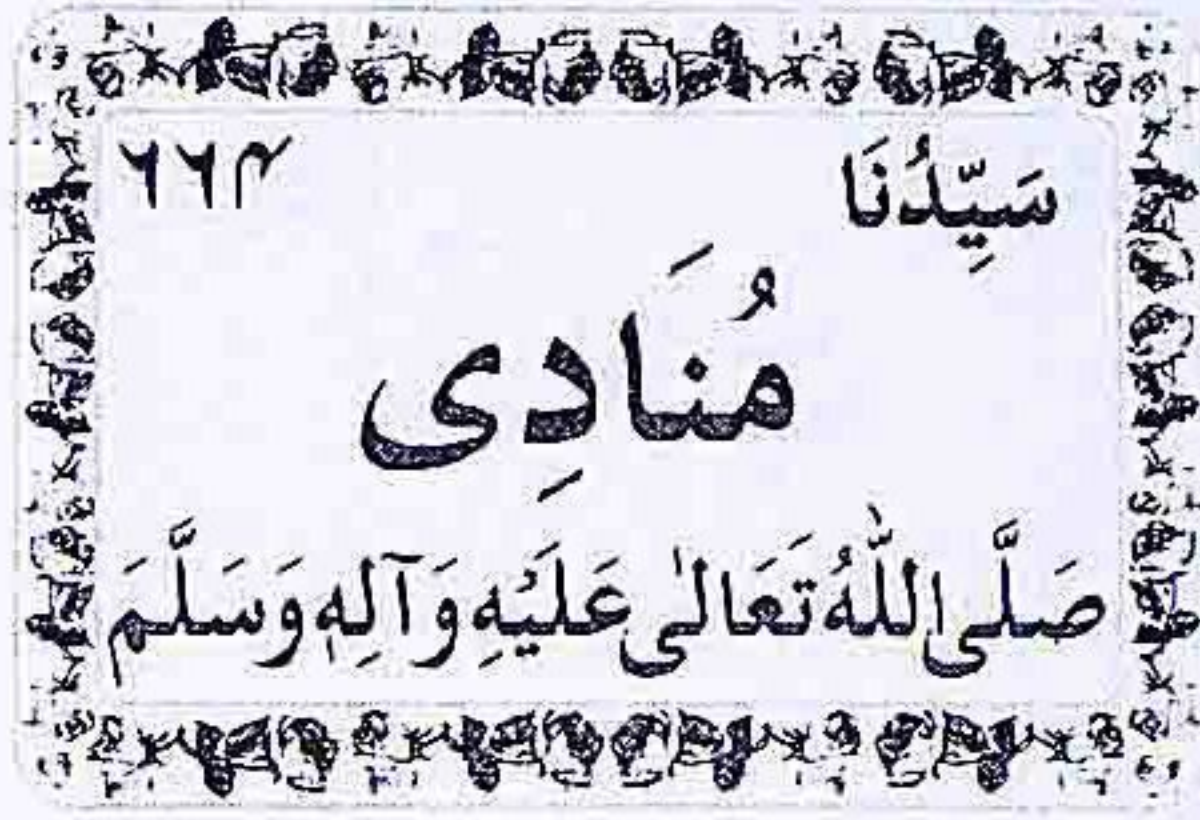 سَيِّدُنَا ٦٦٤
مُنَادِی
صَلَّی اللّٰهُ تَعَالٰی عَلَيْهِ وَآلِهٖ وَسَلَّمَ